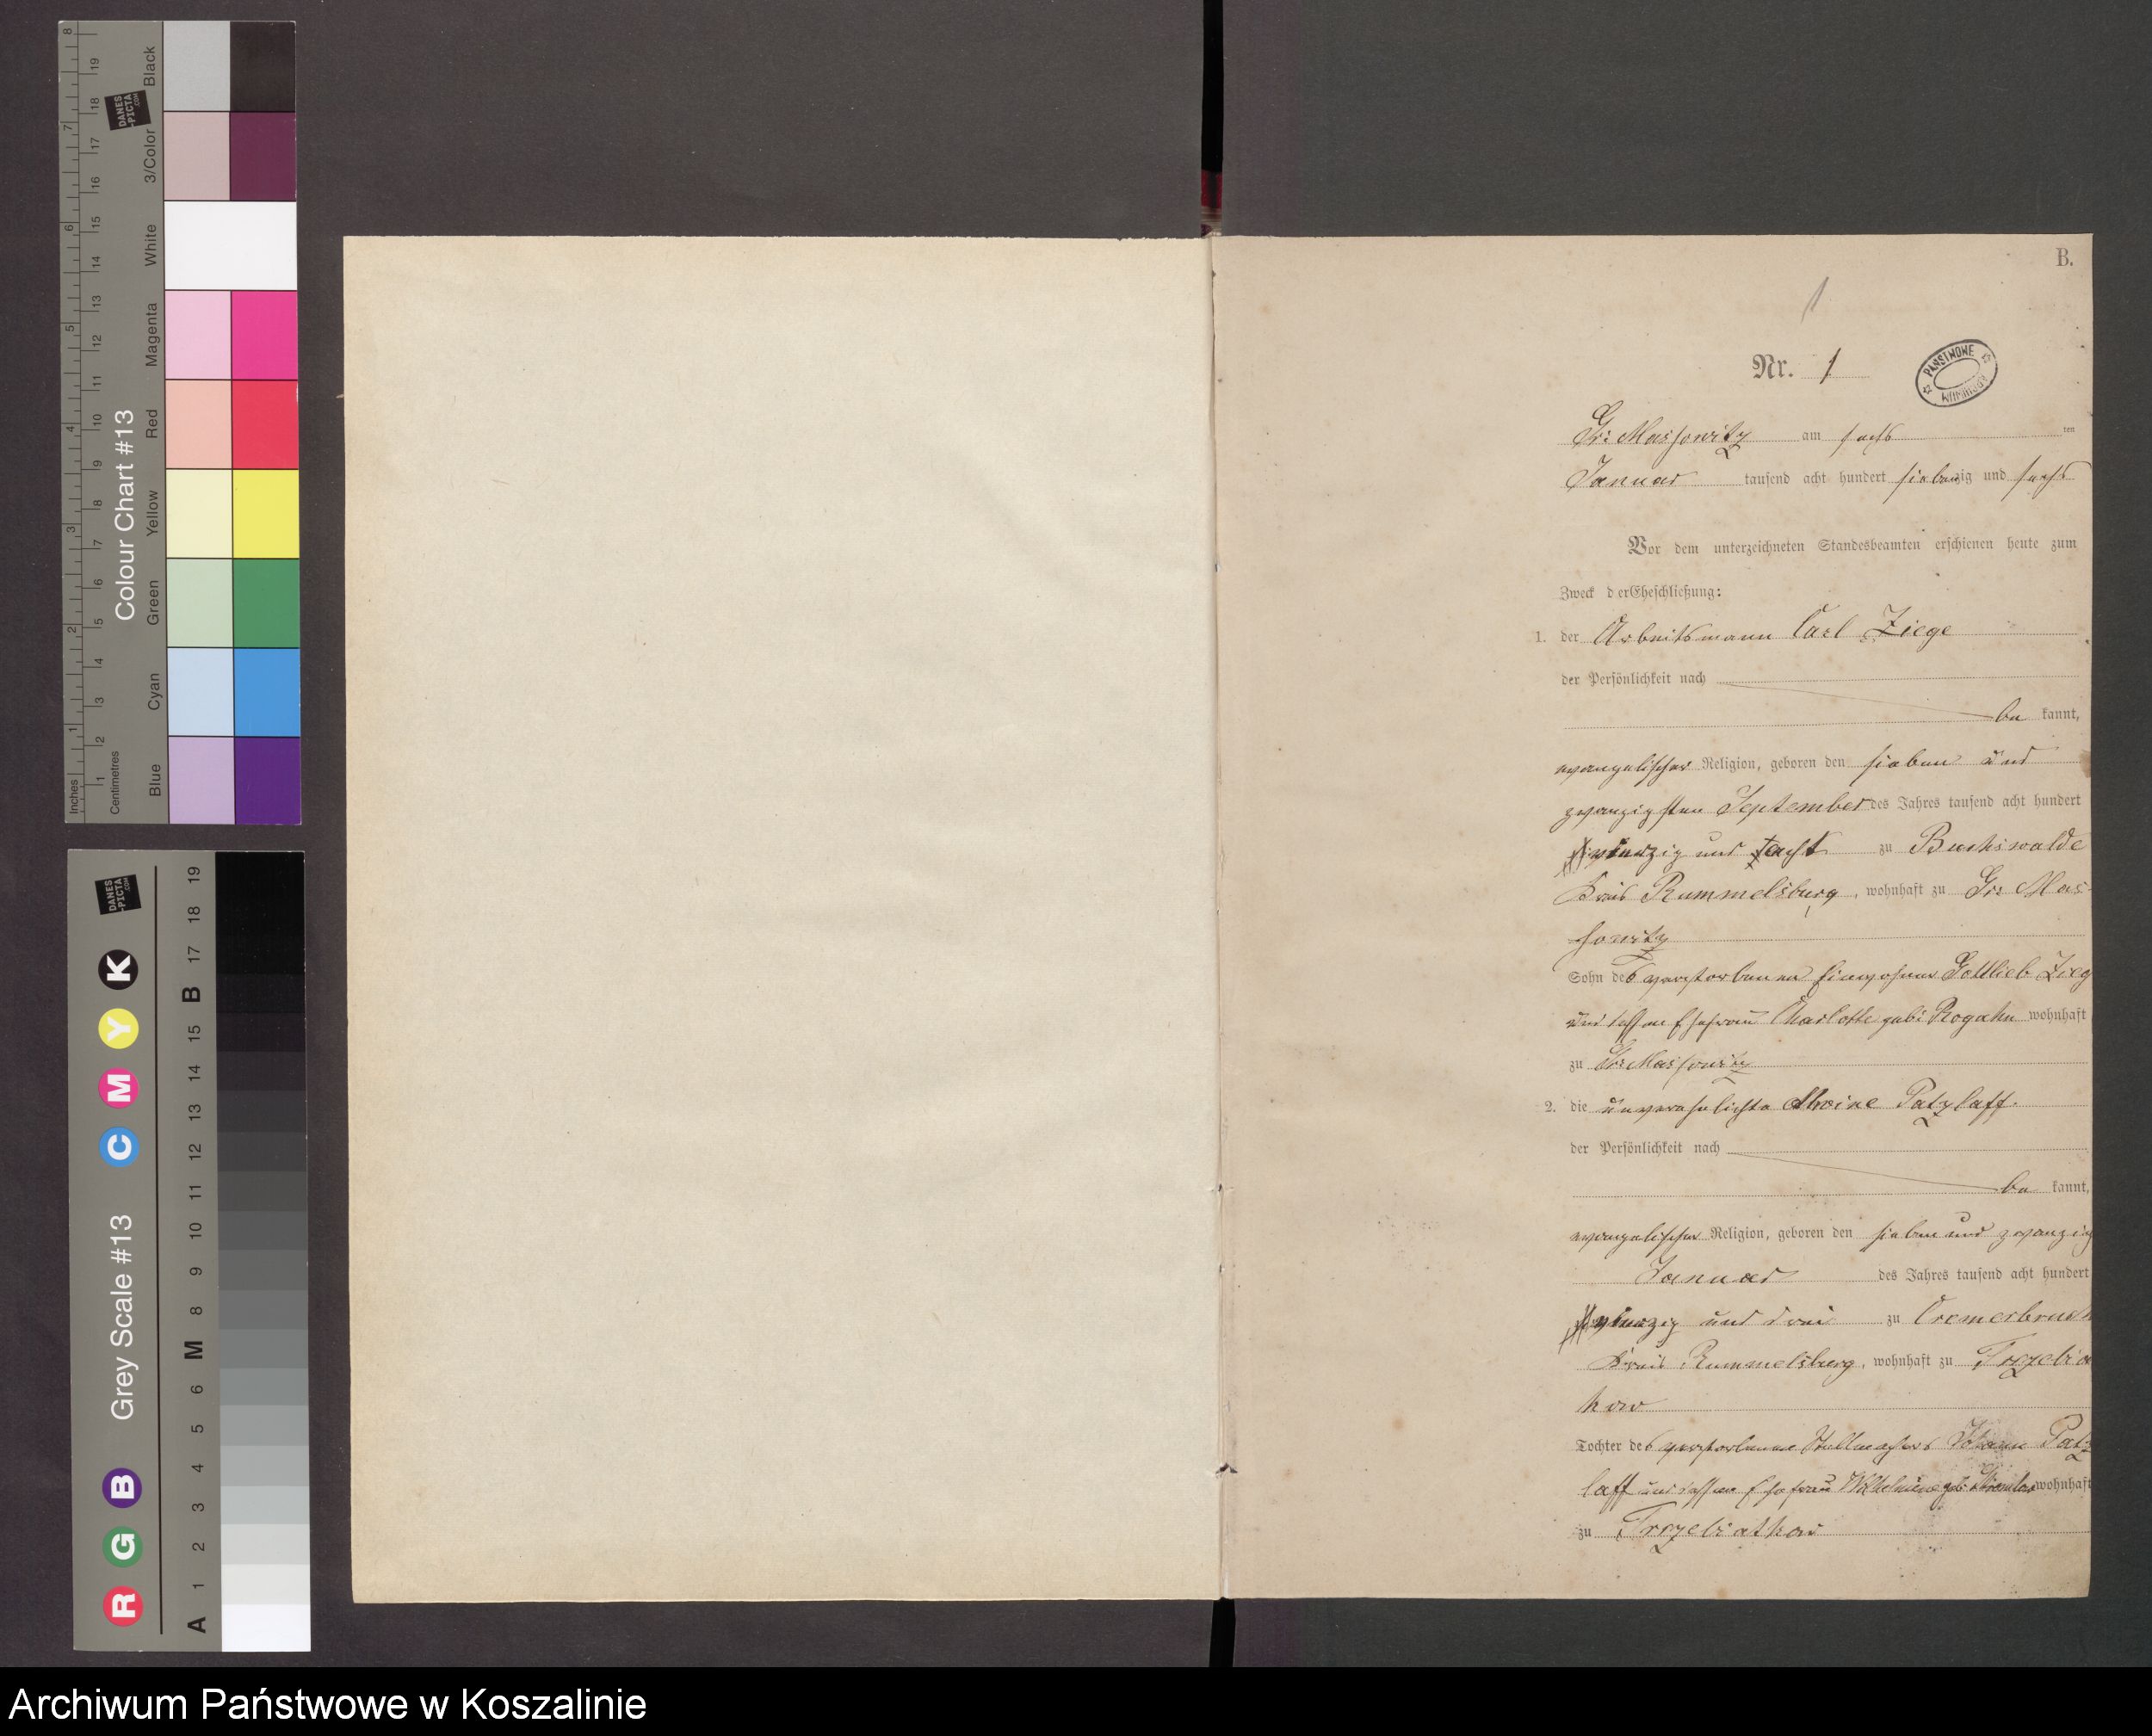 B.
1
Nr. 1
PAŃSTWOWE ARCHIWUM
Gr: Massowitz am sechs ten
Januar tausend acht hundert siebenzig und sechs
Vor dem unterzeichneten Standesbeamten erschienen heute zum
Zweck der Eheschließung:
1. der Arbeitsmann Carl Ziege
der Persönlichkeit nach
be kannt,
evangelischer Religion, geboren den sieben und
zwanzigsten September des Jahres tausend acht hundert
vierzig und acht zu Buchswalde
Kreis Rummelsburg, wohnhaft zu Gr: Mas-
sowitz
Sohn des verstorbenen Einwohner Gottlieb Zieg
und dessen Ehefrau Charlotte geb: Rogahn wohnhaft
zu Gr: Massowitz
2. die unverehelichte Alwine Patzlaff.
der Persönlichkeit nach
be kannt,
evangelischer Religion, geboren den sieben und zwanzig
Januar des Jahres tausend acht hundert
und drei zu Cremerbruch
Kreis Rummelsburg, wohnhaft zu Trzebiat
kow
Tochter des verstorbenen Stellmachers Johann Patz
laff und dessen Ehefrau Wilhelmine geb: wohnhaft
zu Trzebiatkow
Colour Chart #13
Inches
Centimetres
Blue
Cyan
Green
Yellow
Red
Magenta
White
3/Color
Black
DANES
-PICTA
.COM
Grey Scale #13
R G B C M Y K
A 1 2 3 4 5 6 M 8 9 10 11 12 13 14 15 B 17 18 19
Archiwum Państwowe w Koszalinie